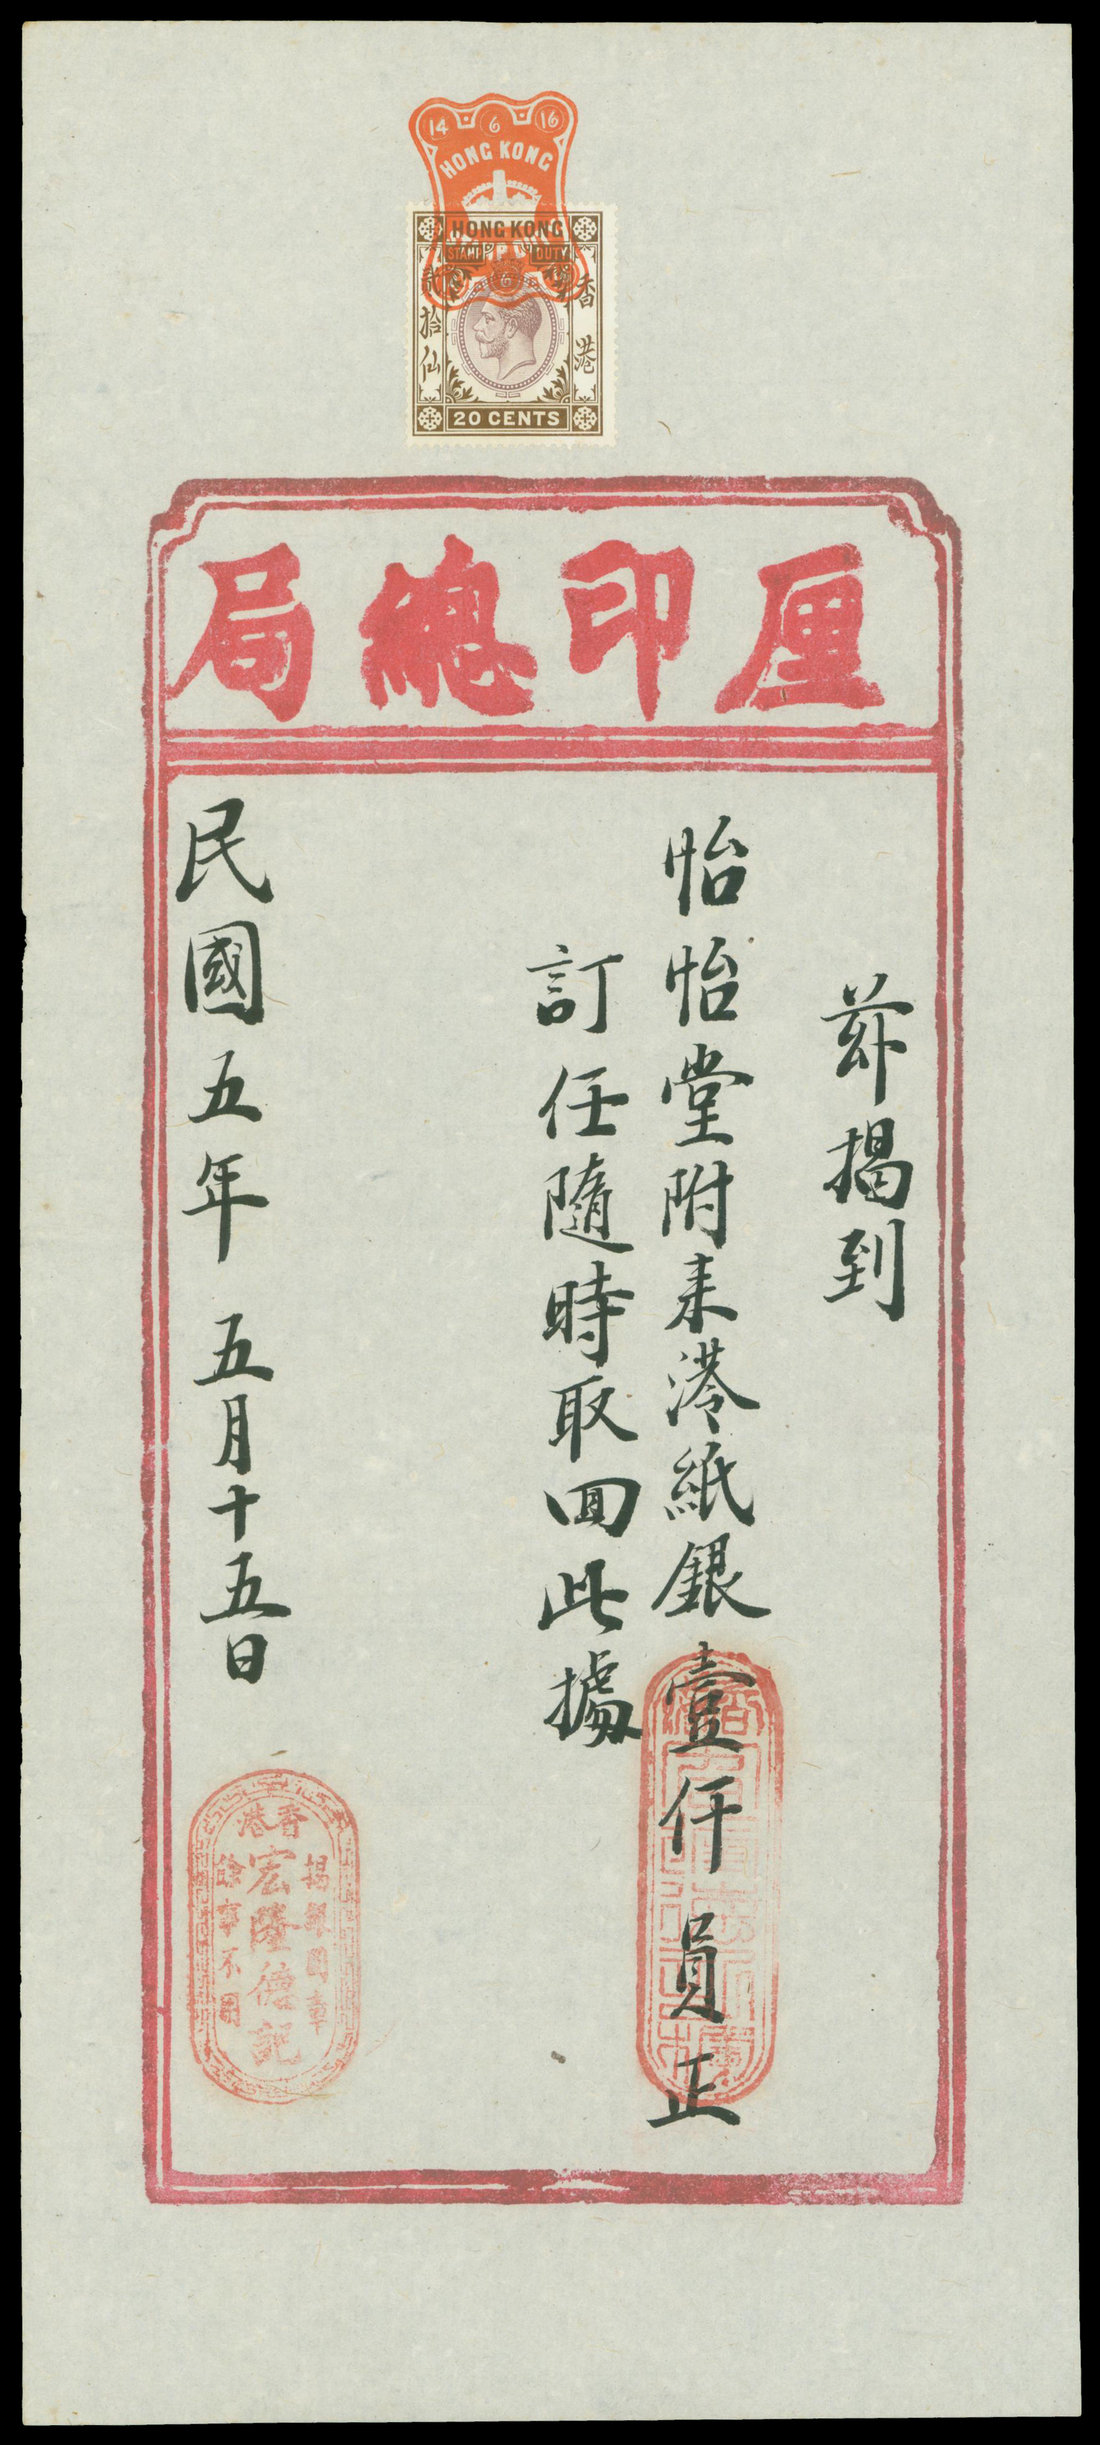 14 6 16
HONG KONG
HONG KONG
STAMP DUTY
香港
貳拾仙
20 CENTS
厘印總局
茲揭到
怡怡堂附來港紙銀壹仟員正
訂任隨時取回此據
民國五年 五月十五日
香港
揭銀圖章
宏隆德記
餘事不用
香港